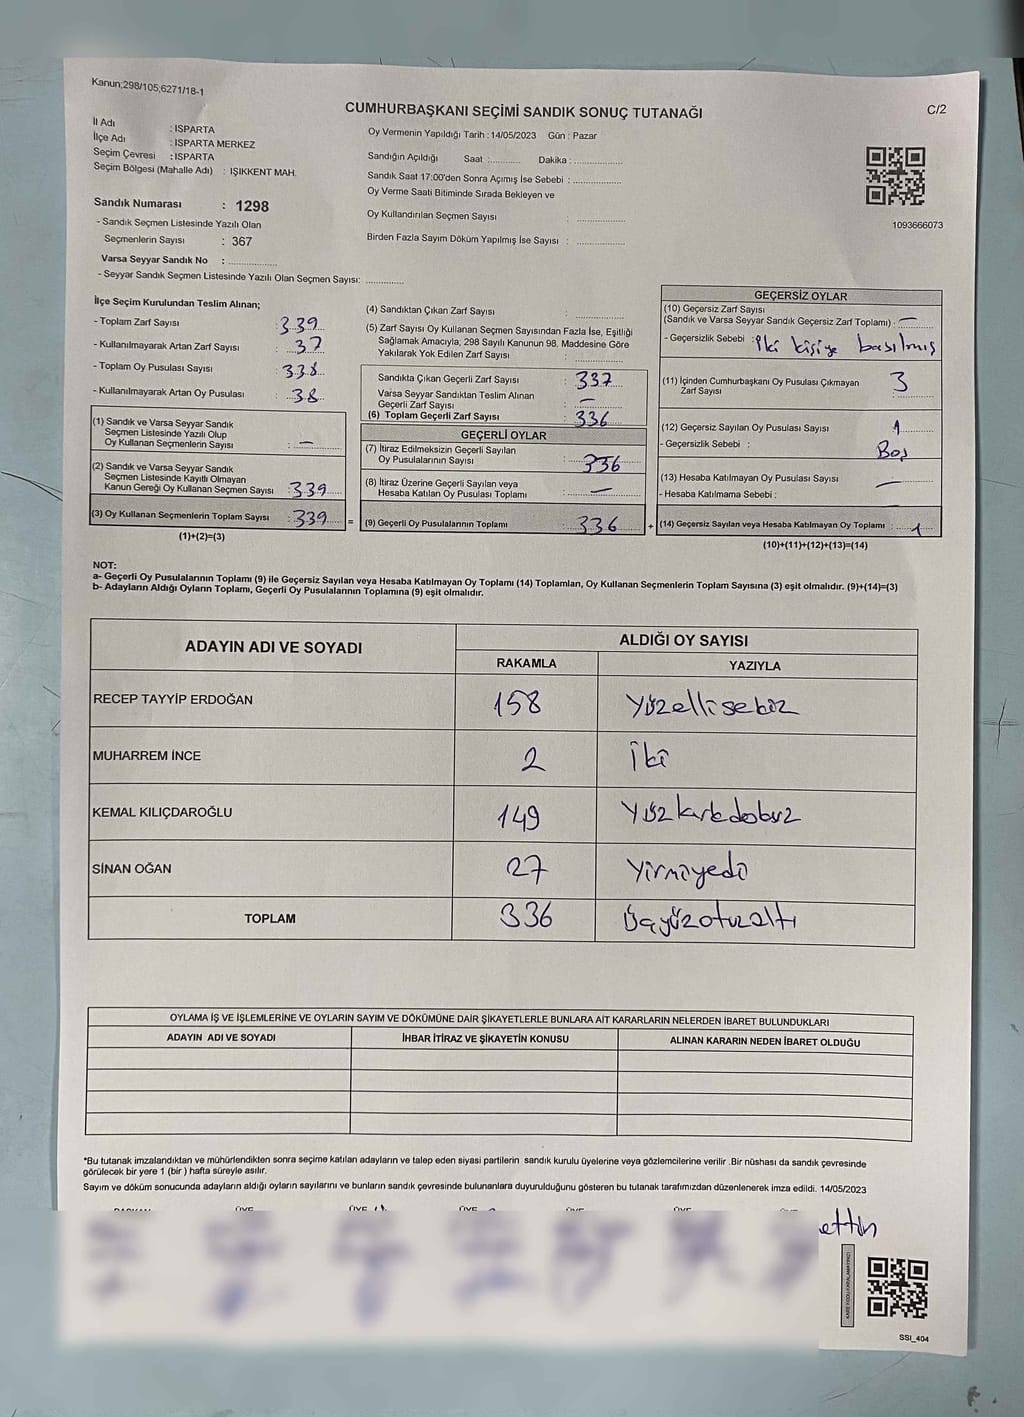 Kanun;298/105;6271/18-1
CUMHURBAŞKANI SEÇİMİ SANDIK SONUÇ TUTANAĞI
C/2
İl Adı : ISPARTA
İlçe Adı : ISPARTA MERKEZ
Seçim Çevresi : ISPARTA
Seçim Bölgesi (Mahalle Adı) : IŞIKKENT MAH.
Sandık Numarası : 1298
- Sandık Seçmen Listesinde Yazılı Olan
Seçmenlerin Sayısı : 367
Varsa Seyyar Sandık No :
- Seyyar Sandık Seçmen Listesinde Yazılı Olan Seçmen Sayısı:
Oy Vermenin Yapıldığı Tarih : 14/05/2023 Gün : Pazar
Sandığın Açıldığı Saat : Dakika :
Sandık Saat 17:00'den Sonra Açımış İse Sebebi :
Oy Verme Saati Bitiminde Sırada Bekleyen ve
Oy Kullandırılan Seçmen Sayısı :
Birden Fazla Sayım Döküm Yapılmış İse Sayısı :
1093666073
İlçe Seçim Kurulundan Teslim Alınan;
- Toplam Zarf Sayısı : 339
- Kullanılmayarak Artan Zarf Sayısı : 37
- Toplam Oy Pusulası Sayısı : 338
- Kullanılmayarak Artan Oy Pusulası : 38
(1) Sandık ve Varsa Seyyar Sandık
Seçmen Listesinde Yazılı Olup
Oy Kullanan Seçmenlerin Sayısı : –
(2) Sandık ve Varsa Seyyar Sandık
Seçmen Listesinde Kayıtlı Olmayan
Kanun Gereği Oy Kullanan Seçmen Sayısı : 339
(3) Oy Kullanan Seçmenlerin Toplam Sayısı : 339 =
(1)+(2)=(3)
(4) Sandıktan Çıkan Zarf Sayısı :
(5) Zarf Sayısı Oy Kullanan Seçmen Sayısından Fazla İse, Eşitliği
Sağlamak Amacıyla, 298 Sayılı Kanunun 98. Maddesine Göre
Yakılarak Yok Edilen Zarf Sayısı :
Sandıkta Çıkan Geçerli Zarf Sayısı : 337
Varsa Seyyar Sandıktan Teslim Alınan
Geçerli Zarf Sayısı : –
(6) Toplam Geçerli Zarf Sayısı : 336
GEÇERLİ OYLAR
(7) İtiraz Edilmeksizin Geçerli Sayılan
Oy Pusulalarının Sayısı : 336
(8) İtiraz Üzerine Geçerli Sayılan veya
Hesaba Katılan Oy Pusulası Toplamı : –
(9) Geçerli Oy Pusulalarının Toplamı : 336 +
GEÇERSİZ OYLAR
(10) Geçersiz Zarf Sayısı
(Sandık ve Varsa Seyyar Sandık Geçersiz Zarf Toplamı) : –
- Geçersizlik Sebebi : iki kişiye basılmış
(11) İçinden Cumhurbaşkanı Oy Pusulası Çıkmayan
Zarf Sayısı : 3
(12) Geçersiz Sayılan Oy Pusulası Sayısı : 1
- Geçersizlik Sebebi : Boş
(13) Hesaba Katılmayan Oy Pusulası Sayısı : –
- Hesaba Katılmama Sebebi :
(14) Geçersiz Sayılan veya Hesaba Katılmayan Oy Toplamı : 1
(10)+(11)+(12)+(13)=(14)
NOT:
a- Geçerli Oy Pusulalarının Toplamı (9) ile Geçersiz Sayılan veya Hesaba Katılmayan Oy Toplamı (14) Toplamları, Oy Kullanan Seçmenlerin Toplam Sayısına (3) eşit olmalıdır. (9)+(14)=(3)
b- Adayların Aldığı Oyların Toplamı, Geçerli Oy Pusulalarının Toplamına (9) eşit olmalıdır.
ADAYIN ADI VE SOYADI ALDIĞI OY SAYISI
RAKAMLA YAZIYLA
RECEP TAYYİP ERDOĞAN 158 Yüzellisekiz
MUHARREM İNCE 2 iki
KEMAL KILIÇDAROĞLU 149 Yüzkırkdokuz
SİNAN OĞAN 27 Yirmiyedi
TOPLAM 336 Üçyüzotuzaltı
OYLAMA İŞ VE İŞLEMLERİNE VE OYLARIN SAYIM VE DÖKÜMÜNE DAİR ŞİKAYETLERLE BUNLARA AİT KARARLARIN NELERDEN İBARET BULUNDUKLARI
ADAYIN ADI VE SOYADI İHBAR İTİRAZ VE ŞİKAYETİN KONUSU ALINAN KARARIN NEDEN İBARET OLDUĞU
*Bu tutanak imzalandıktan ve mühürlendikten sonra seçime katılan adayların ve talep eden siyasi partilerin sandık kurulu üyelerine veya gözlemcilerine verilir .Bir nüshası da sandık çevresinde
görülecek bir yere 1 (bir ) hafta süreyle asılır.
Sayım ve döküm sonucunda adayların aldığı oyların sayılarını ve bunların sandık çevresinde bulunanlara duyurulduğunu gösteren bu tutanak tarafımızdan düzenlenerek imza edildi. 14/05/2023
ettin
SSI_404